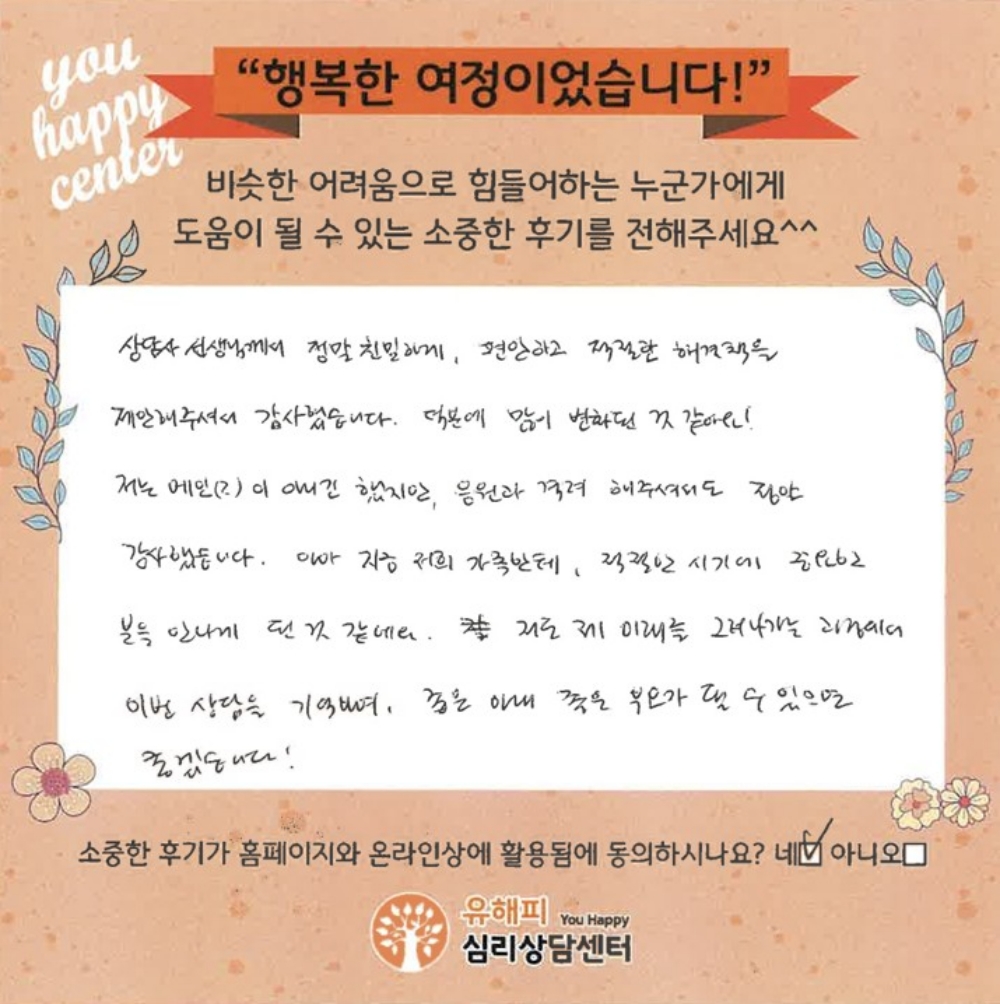 you
happy
center
“행복한 여정이었습니다!”
비슷한 어려움으로 힘들어하는 누군가에게
도움이 될 수 있는 소중한 후기를 전해주세요^^
상담사 선생님께서 정말 친밀하게, 편안하고 적절한 해결책을
제안해주셔서 감사했습니다. 덕분에 많이 변화된 것 같아요!
저는 메인(?)이 아니긴 했지만, 응원과 격려 해주셔서도 정말
감사했습니다. 아마 지금 저희 가족한테, 적절한 시기에 중요한
분을 만나게 된 것 같네요. 저도 제 미래를 그려나가는 과정에서
이번 상담을 기억하며, 좋은 아내 좋은 부모가 될 수 있으면
좋겠습니다!
소중한 후기가 홈페이지와 온라인상에 활용됨에 동의하시나요? 네☑ 아니오□
유해피 You Happy
심리상담센터